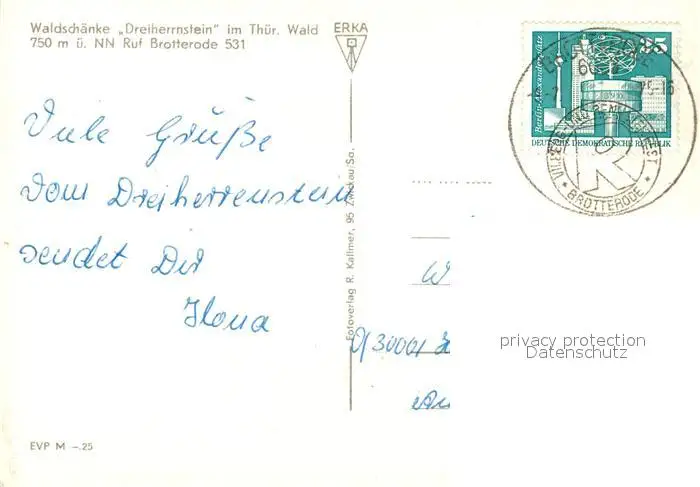 Waldschänke „Dreiherrnstein" im Thür. Wald
750 m ü. NN Ruf Brotterode 531
ERKA
Viele Grüße
vom Dreiherrenstein
sendet Dir
Ilona
EVP M –.25
Fotoverlag R. Kallmer, 95 Zwickau/Sa.
Berlin-Alexanderplatz
35
DEUTSCHE DEMOKRATISCHE REPUBLIK
BROTTERODE
W
privacy protection
Datenschutz